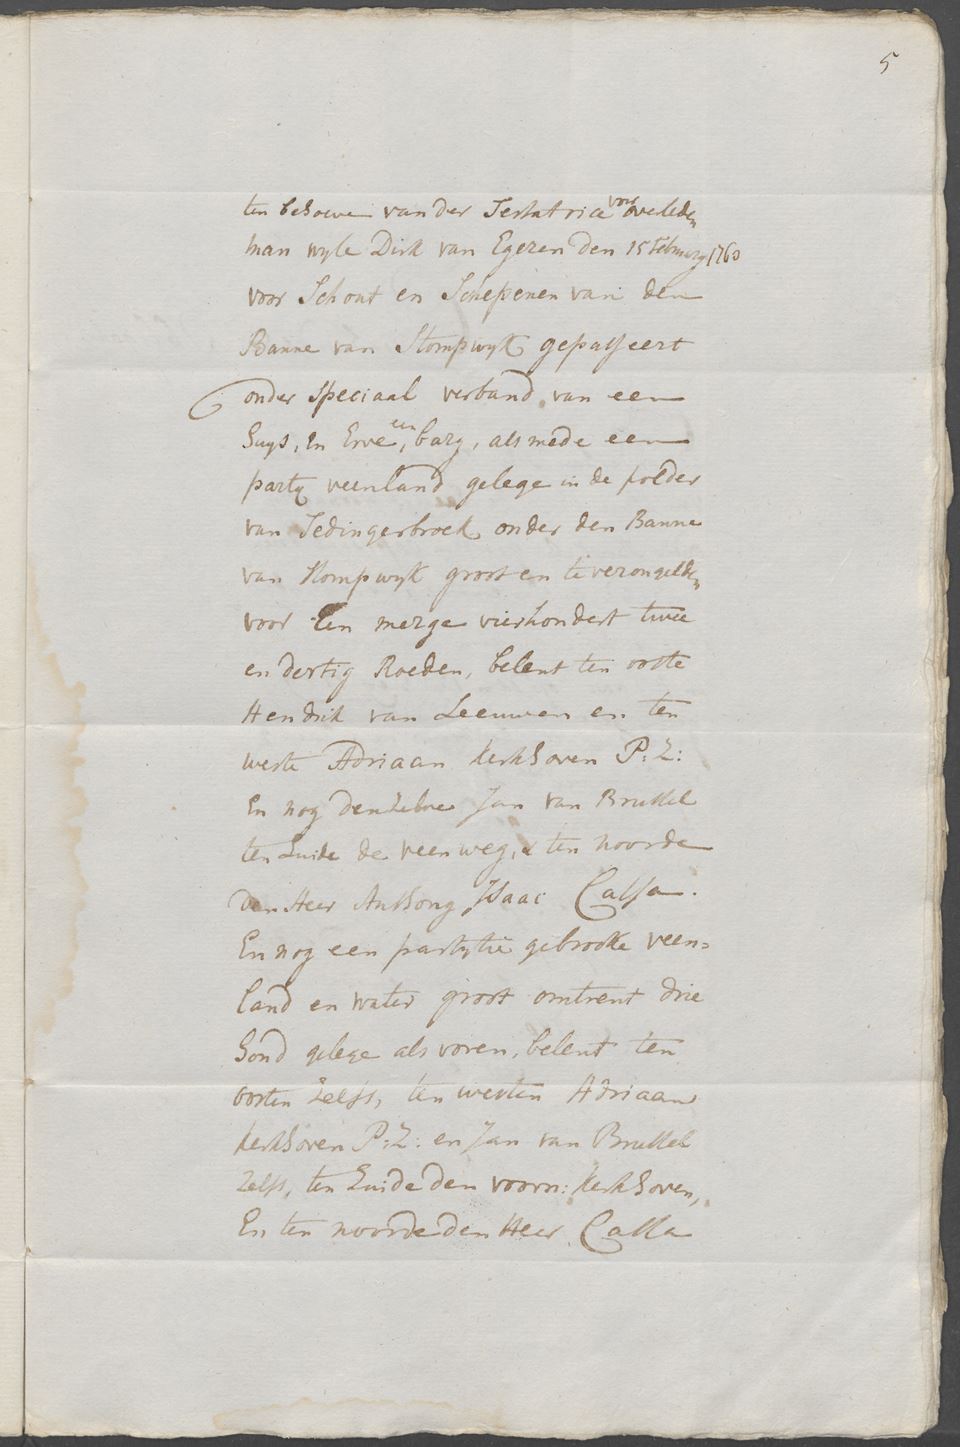 5
ten behoeve van der Testatrice voor overleden
man wyle Dirk van Egeren den 15 february 1760
voor Schout en Schepenen van den
Banne van Stompwyk gepasseert
onder speciaal verband van een
huys, en Erve, een barg, als mede een
party veenland gelege in de polder
van Tedingerbroek onder den Banne
van Stompwyk groot en te verongelden
voor Een merge vierhondert twee
en dertig Roeden, belent ten ooste
Hendrik van Leeuwen en ten
weste Adriaan kerkhoven P: Z:
En nog denzelve Jan van Brussel
ten Zuide de veenweg, & ten noorde
den Heer Anthony Isaac Calsa.
En nog een partytie gebrooke veen=
land en water groot omtrent drie
hond gelege als voren, belent ten
oosten Zelfs, ten westen Adriaan
kerkhoven P: Z: en Jan van Brussel
Zelfs, ten Zuide den voorn: kerkhoven,
En ten noorde den Heer Calsa